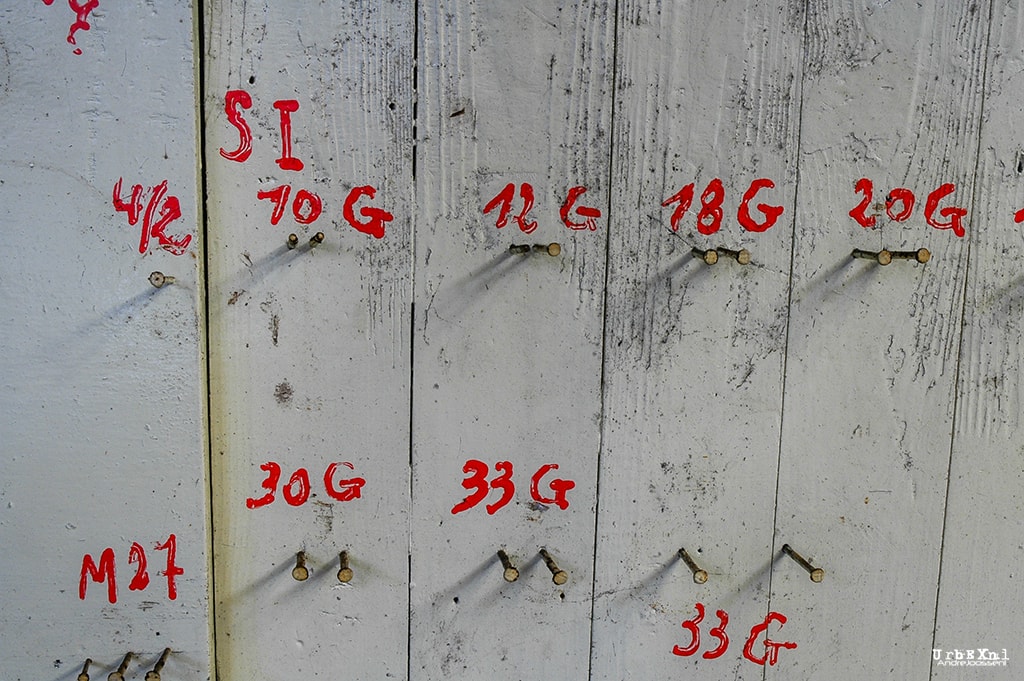 SI
4/2 10 G 12 G 18 G 20 G
30 G 33 G
M27
33 G
UrbEXnl
AndreJoosseni